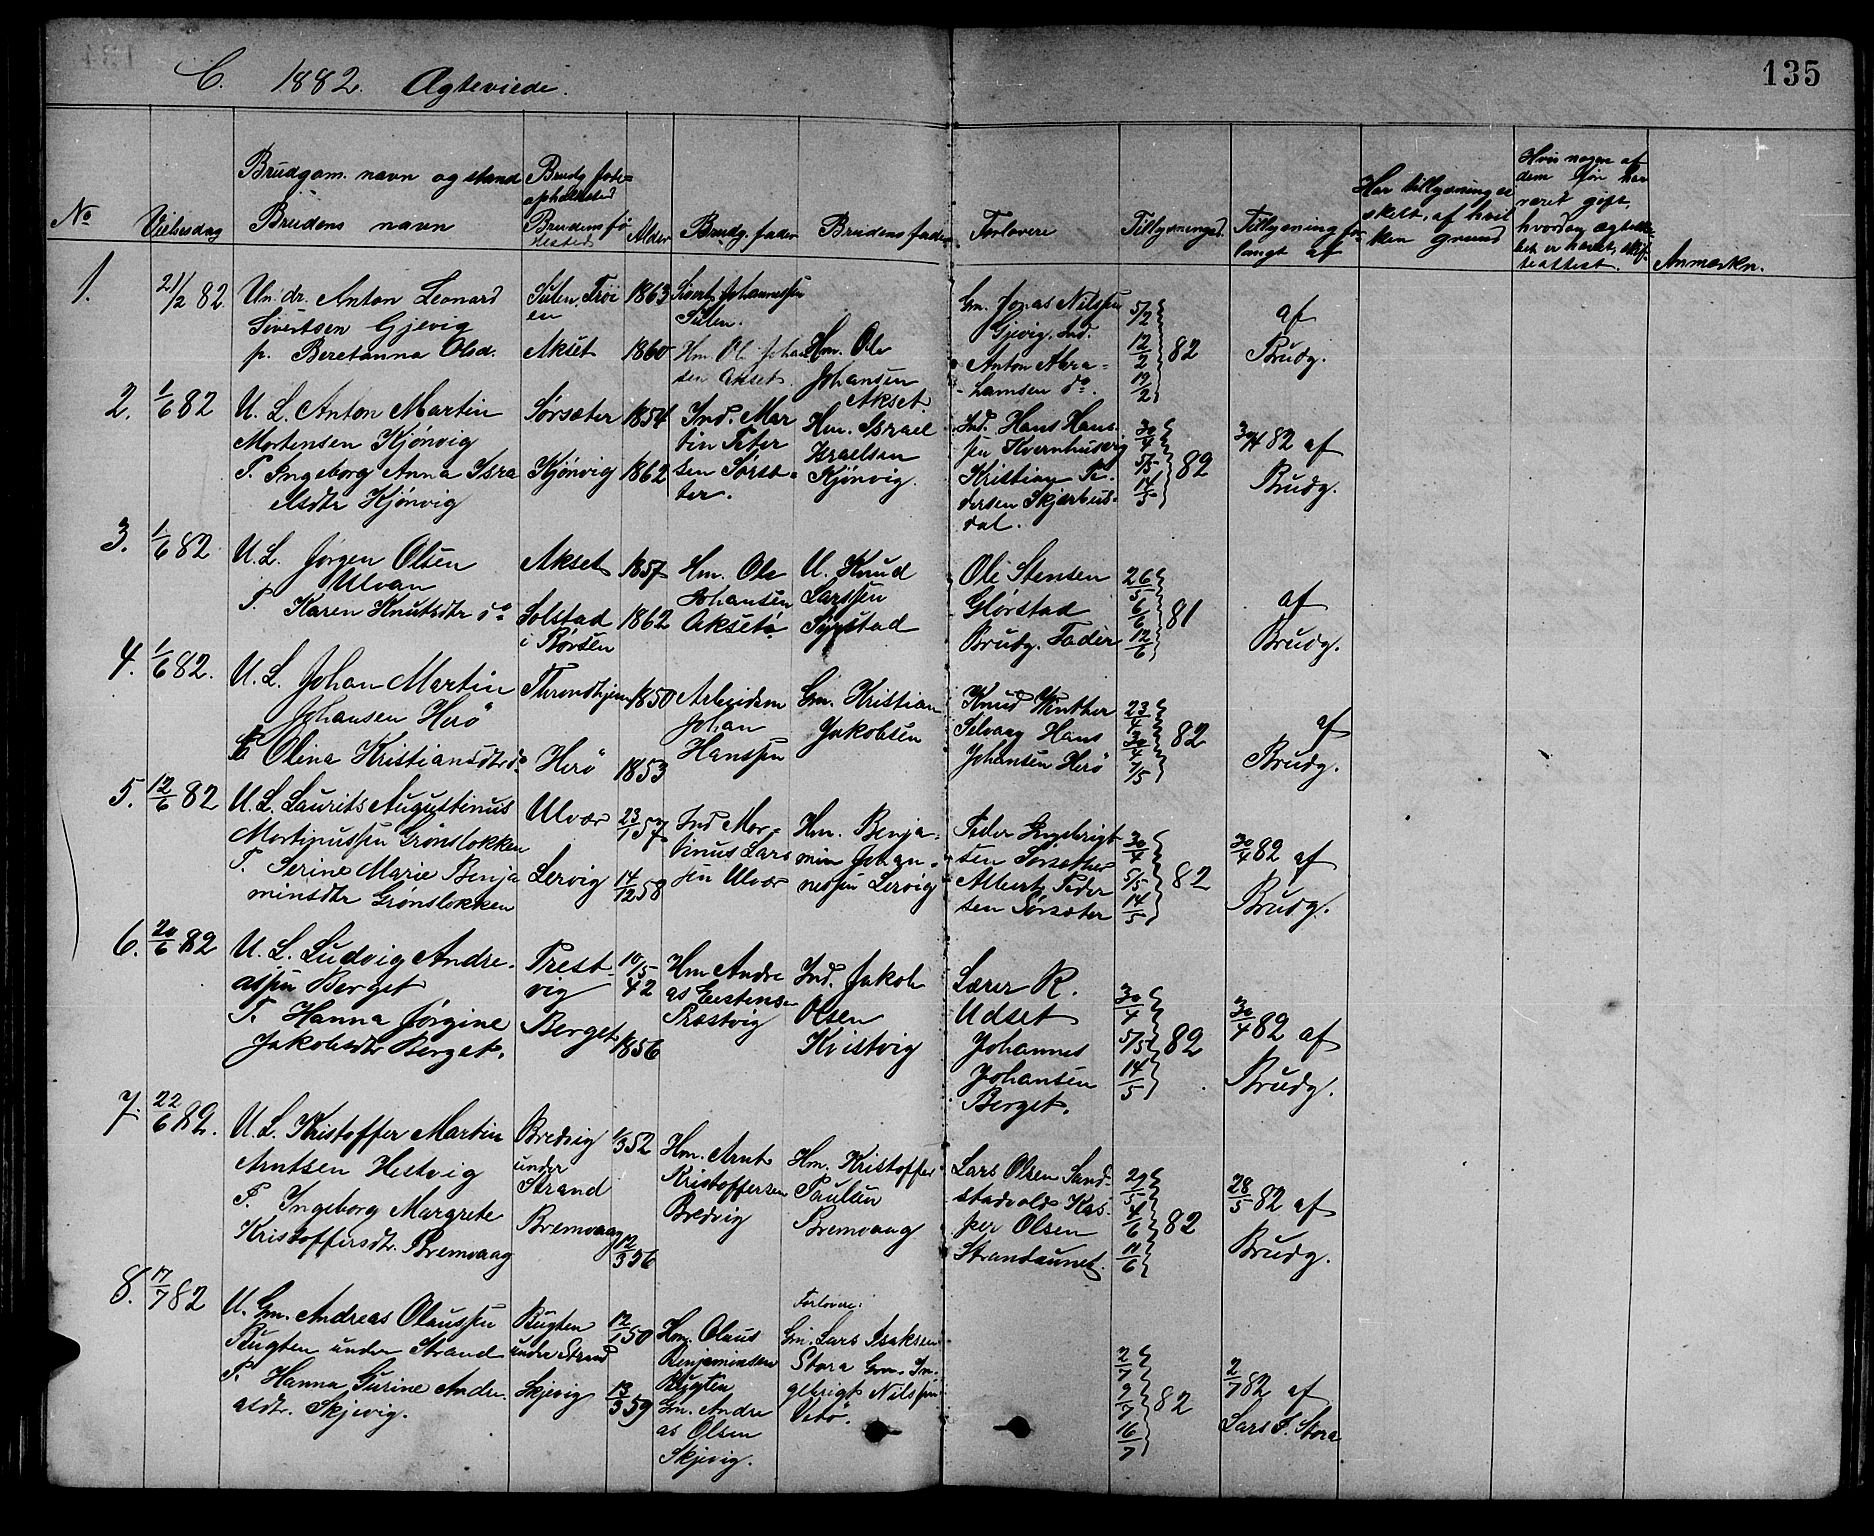 C. 1882. Ægteviede.
135
No
Vielsesdag
Brudgom. navn og stand
Brudens navn
Brudg. føde=
opholdssted
Brudens fø
dested
Alder
Brudg. fader
Brudens fader
Forlovere
Tillysningsd.
Tillysning for
langt af
Har tillysning er
skelt, af hvil
ken grund
Hvis nogen af
dem før har
været gift,
hvordan ægteska
bet er hævet, skif
teattest.
Anmærkn.
1.
21/2 82
Un. dr. Anton Leonard
Sivertsen Gjevig
p. Beretanna Olsd.
Sulen, Frøi
en
Akset
1863
1860
Sivert Johannessen
Sulen.
Hm. Ole Johan
sen Akset.
Hm. Ole
Johansen
Akset.
Gm. Jonas Nilssen
Gjevig, Ind.
Anton Abra=
hamsen do.
5/2
12/2
19/2
82
af
Brudg.
2.
1/6 82
U. L. Anton Martin
Mortensen Kjønvig
P. Ingeborg Anna Isra
elsdtr Kjønvig
Sørsæter
Kjønvig
1854
1862
Ind. Mar
tin Peter
sen Sørsæ
ter.
Hm. Israel
Israelsen
Kjønvig.
Ind. Hans Hans
sen Kvernhusvig
Kristian Pe
dersen Skjærhus
dal.
30/4
5/5
14/5
82
30/4 82 af
Brudg.
3.
1/6 82
U. L. Jørgen Olsen
Ulvan
P. Karen Knutsdtr do
Akset
Solstad
i Børsen
1857
1862
Hm. Ole
Johansen
Akset
U. Knud
Larssen
Sygstad
Ole Stensen
Glørstad
Brudg. Fader
26/5
6/6
12/6
81
af
Brudg.
4.
1/6 82.
U. L. Johan Martin
Johansen Herö
P. Olina Kristiansdtr do
Throndhjem
Herö
1850
1853
Arbeidsm
Johan
Hanssen
Gm. Kristian
Jakobsen
Knud Winther
Selvaag Hans
Johansen Herö
23/4
30/4
7/5
82
af
Brudg.
5.
12/6 82
U. L. Laurits Augustinus
Martinussen Grønslokken
P. Serine Marie Benja
minsdtr Grønslokken
Ulvær
Lervig
23/1 57
14/12 58
Ind Mar=
tinus Lars
sen Ulvær
Hm. Benja=
min Johan=
nessen Lervig
Peder Ingebrigt
sen Sørsæther
Albert Peder
sen Sørsæter
30/4
5/5
14/5
82
30/4 82 af
Brudg.
6.
20/6 82
U. L. Ludvig Andre=
assen Berget
P. Hanna Jørgine
Jakobsdtr Berget.
Prest
vig
Berget
10/5
42
1856
Hm Andre
as Eustensen
Præstvig
Ind. Jakob
Olsen
Kvistvig
Lærer R.
Udset
Johannes
Johansen
Berget.
30/4
5/5
14/5
82
30/4 82 af
Brudg.
7.
22/6 82.
U. L. Kristoffer Martin
Arntsen Hestvig
P. Ingeborg Margrete
Kristoffersdtr. Bremvaag
Bredvig
under
Strand
Bremvaag
1/3 52
12/3 56
Hm. Arnt
Kristoffersen
Bredvig
Hm. Kristoffer
Paulsen
Bremvaag
Lars Olsen Sand=
stadvold Kas=
per Olsen
Strandaunet.
29/5
4/6
11/6
82
28/5 82 af
Brudg.
8.
17/7 82
U. Gm. Andreas Olaussen
Bugten under Strand
P. Hanna Gurine Andre
asdtr. Skjevig.
Bugten
under Strand
Skjevig
12/1 50
13/3 59
Hm. Olaus
Benjaminsen
Bugten
Gm. Andre
as Olsen
Skjevig.
Forlovere:
Gm. Lars Isaksen
Stora Gm. In
gebrigt Nilssen
Utsö.
2/7
9/7
16/7
82
2/7 82 af
Lars I. Stora